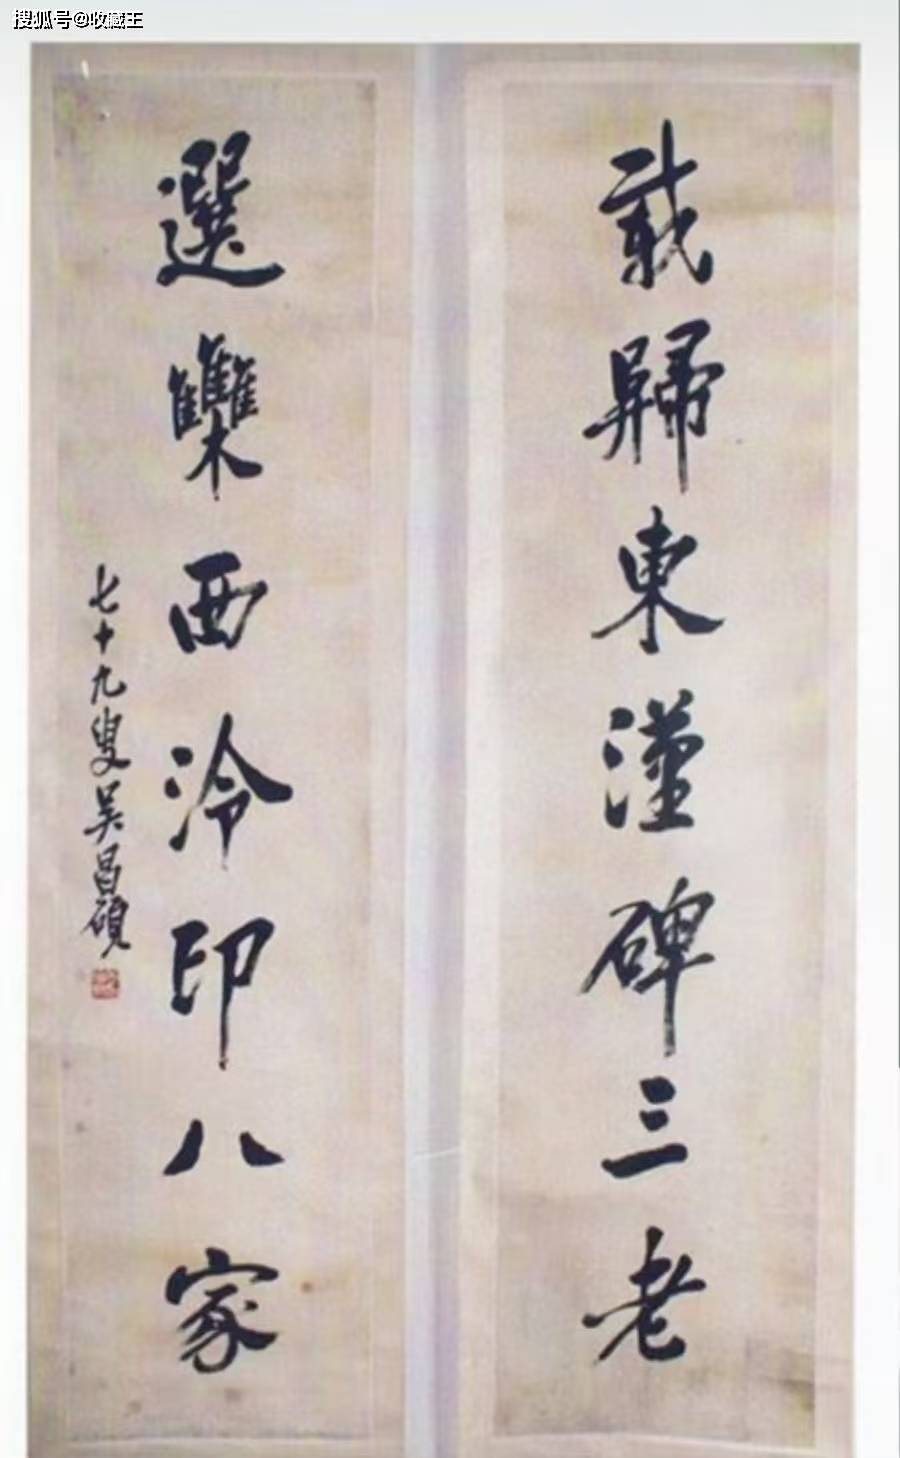 搜狐号@收藏王
載歸東漢碑三老
選雧西泠印八家
七十九叟吴昌碩